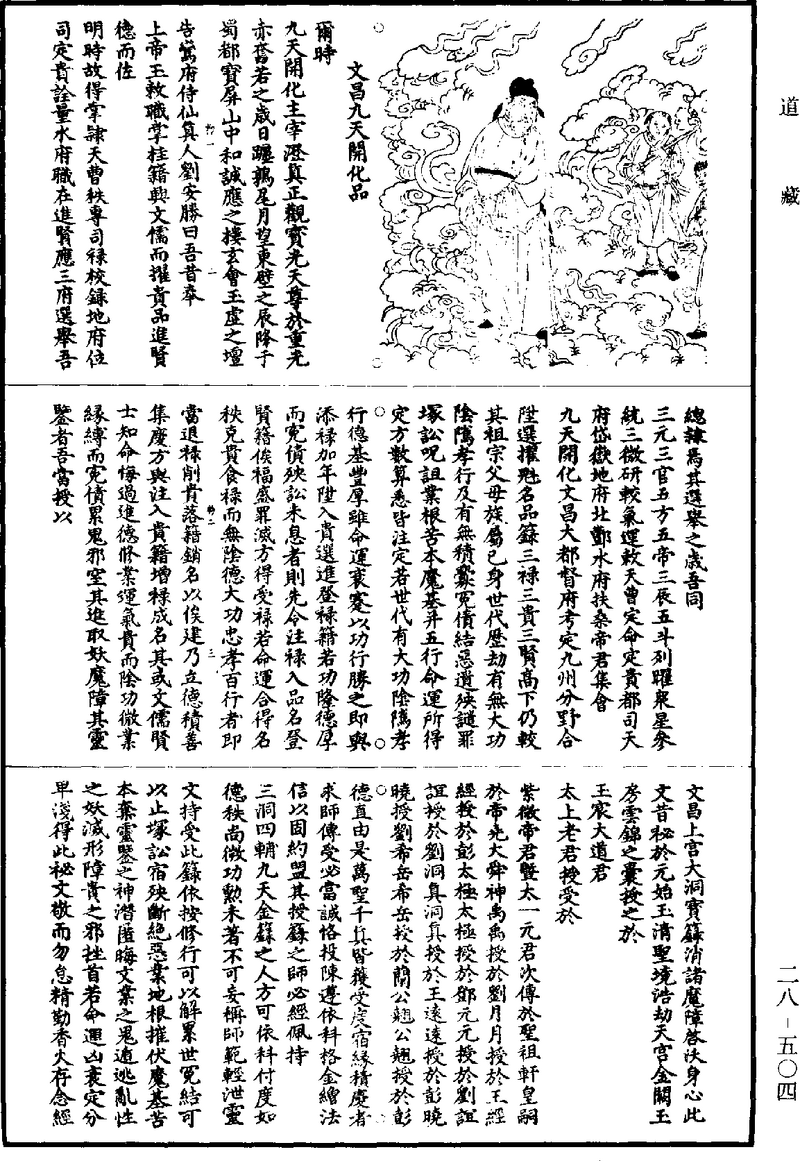 道藏
文昌九天開化品
爾時
九天開化主宰澄真正觀寶光天尊於重光
赤奮若之歲日躔鶉尾月望東壁之辰降于
蜀都寶屏山中和誠應之樓玄會玉虛之壇
告鸞府侍仙真人劉安勝曰吾昔奉
上帝玉敕職掌桂籍與文儒而擢貴品進賢
德而佐
明時故得掌隸天曹秩專司祿校錄地府位
司定貴詮量水府職在進賢應三府選舉吾
總隸焉其選舉之歲吾同
三元三官五方五帝三辰五斗列躍衆星參
統三微研較氣運敕天曹定命定貴都司天
府岱嶽地府北酆水府扶桑帝君集會
九天開化文昌大都督府考定九州分野合
陞選擢魁名品錄三祿三貴三賢高下仍較
其祖宗父母族屬已身世代歷劫有無大功
陰隲孝行及有無積釁冤債結惡遺殃譴罪
塚訟呪詛業根苦本魔基并五行命運所得
定方數算悉皆注定若世代有大功陰隲孝
行德基豐厚雖命運衰蹇以功行勝之即與
添祿加年陞入貴選進登祿籍若功隆德厚
而冤債殃訟未息者則先命注祿入品名登
賢籍俟福盛罪滅方得受祿若命運合得名
秩克貴食祿而無陰德大功忠孝百行者即
當退祿削貴落籍銷名以俟建乃立德積善
集慶方與注入貴籍增祿成名其或文儒賢
士知命悔過進德修業運氣貴而陰功微業
緣縛而冤債累鬼邪窒其進取妖魔障其靈
鑒者吾當授以
文昌上宮大洞寶籙消諸魔障啓沃身心此
文昔祕於元始玉清聖境浩劫天宮金闕玉
房雲錦之囊授之於
玉宸大道君
太上老君授受於
紫微帝君曁太一元君次傳於聖祖軒皇嗣
於帝堯大舜神禹禹授於劉月月授於王經
經授於彭太極太極授於鄧元元授於劉誼
誼授於劉洞真洞真授於王遠遠授於彭曉
曉授劉希岳希岳授於蘭公翹公翹授於彭
德直由是萬聖千真皆獲受度宿緣積慶者
求師傳受必當誠恪投陳遵依科格金繒法
信以固約盟其授籙之師必經佩持
三洞四輔九天金籙之人方可依科付度如
德秩尚微功勳未著不可妄稱師範輕泄靈
文持受此籙依按修行可以解累世冤結可
以止塚訟宿殃斷絕惡業地根摧伏魔基苦
本棄靈鑒之神潛匿晦文業之鬼逍逃亂性
之妖滅形障貴之邪挫首若命運凶衰定分
早淺得此秘文敬而勿怠精勤香火存念經
二八–五〇四